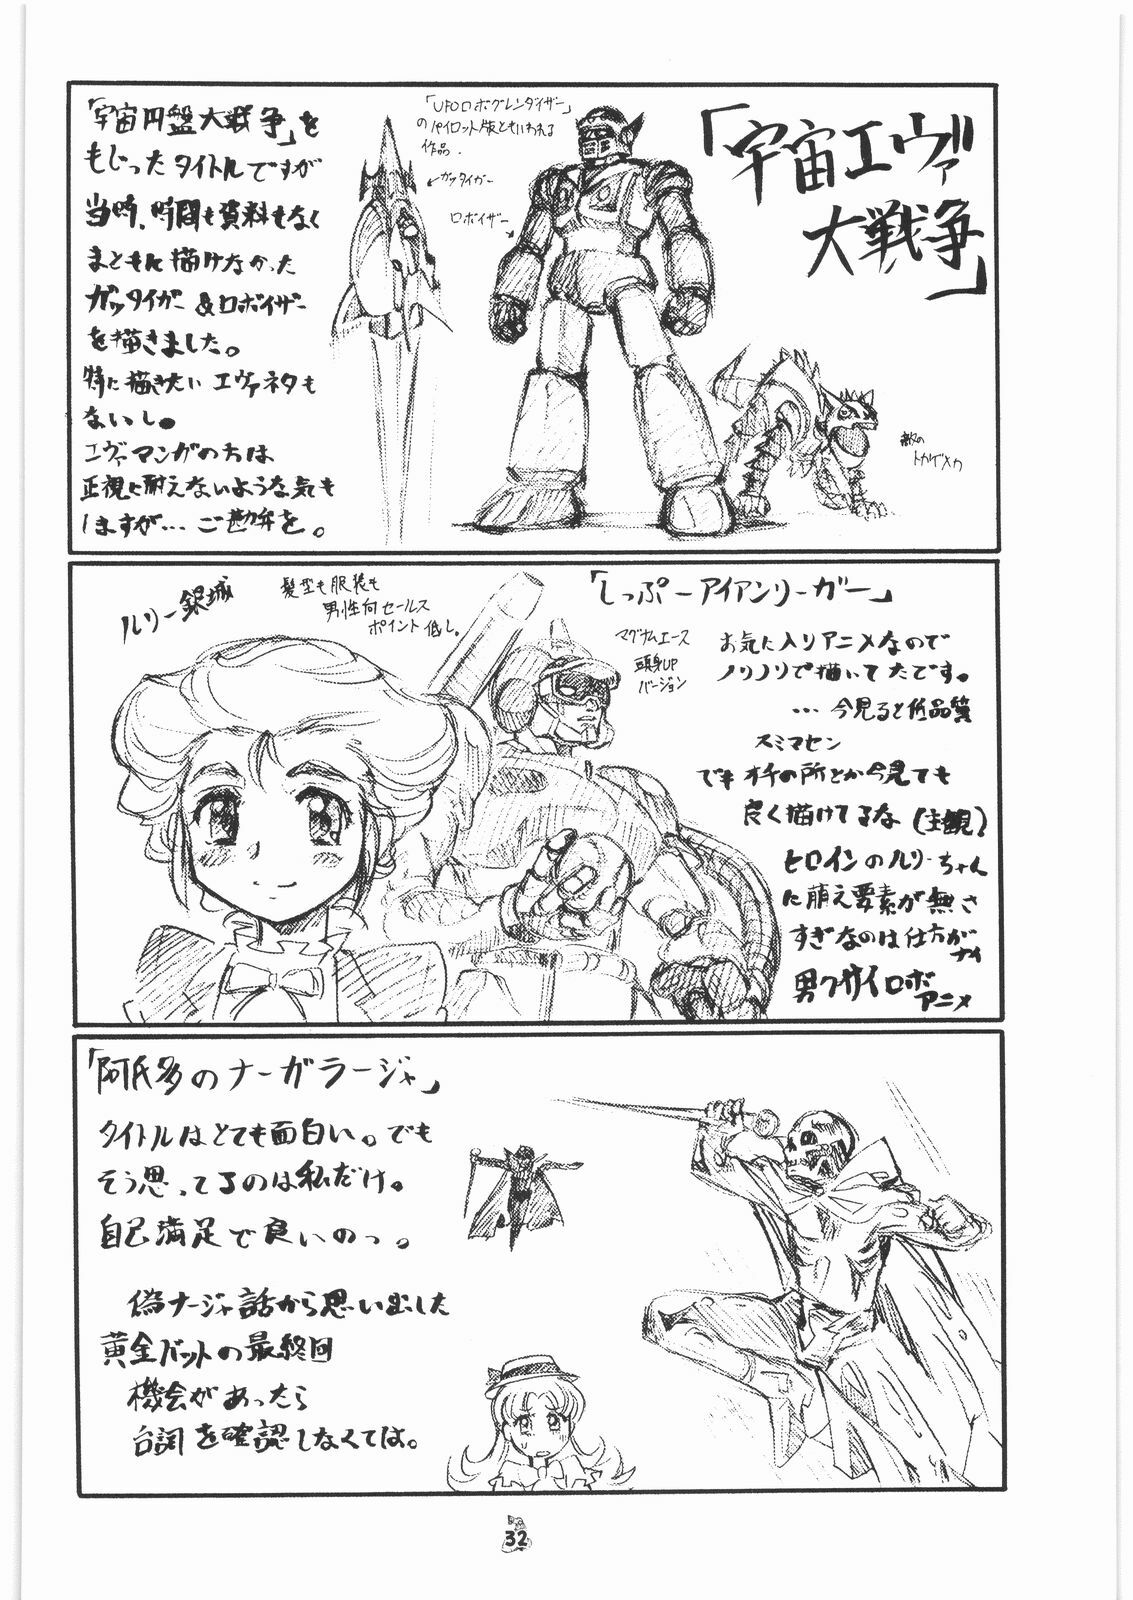 「宇宙エヴァ
大戦争」
「宇宙円盤大戦争」を
もじったタイトルですが
当時、時間も資料もなく
まともに描けなかった
ガッタイガー&ロボイザー
を描きました。
特に描きたいエヴァネタも
ないし。
エヴァマンガの方は
正視に耐えないような気も
しますが…ご勘弁を。
「UFOロボグレンダイザー」
のパイロット版ともいわれる
作品.
ガッタイガー
ロボイザー
敵の
トカゲメカ
「しっぷーアイアンリーガー」
ルリー銀城
髪型も服装も
男性向セールス
ポイント低し。
マグナムエース
頭身UP
バージョン
お気に入りアニメなので
ノリノリで描いてたです。
…今見ると作品質
スミマセン
でもオチの所とか今見ても
良く描けてるな(主観)
ヒロインのルリーちゃん
に萌え要素が無さ
すぎなのは仕方が
ナイ
男クサイロボ
アニメ
「阿氏多のナーガラージャ」
タイトルはとても面白い。でも
そう思ってるのは私だけ。
自己満足で良いのっ。
偽ナージャ話から思い出した
黄金バットの最終回
機会があったら
台詞を確認しなくては。
32